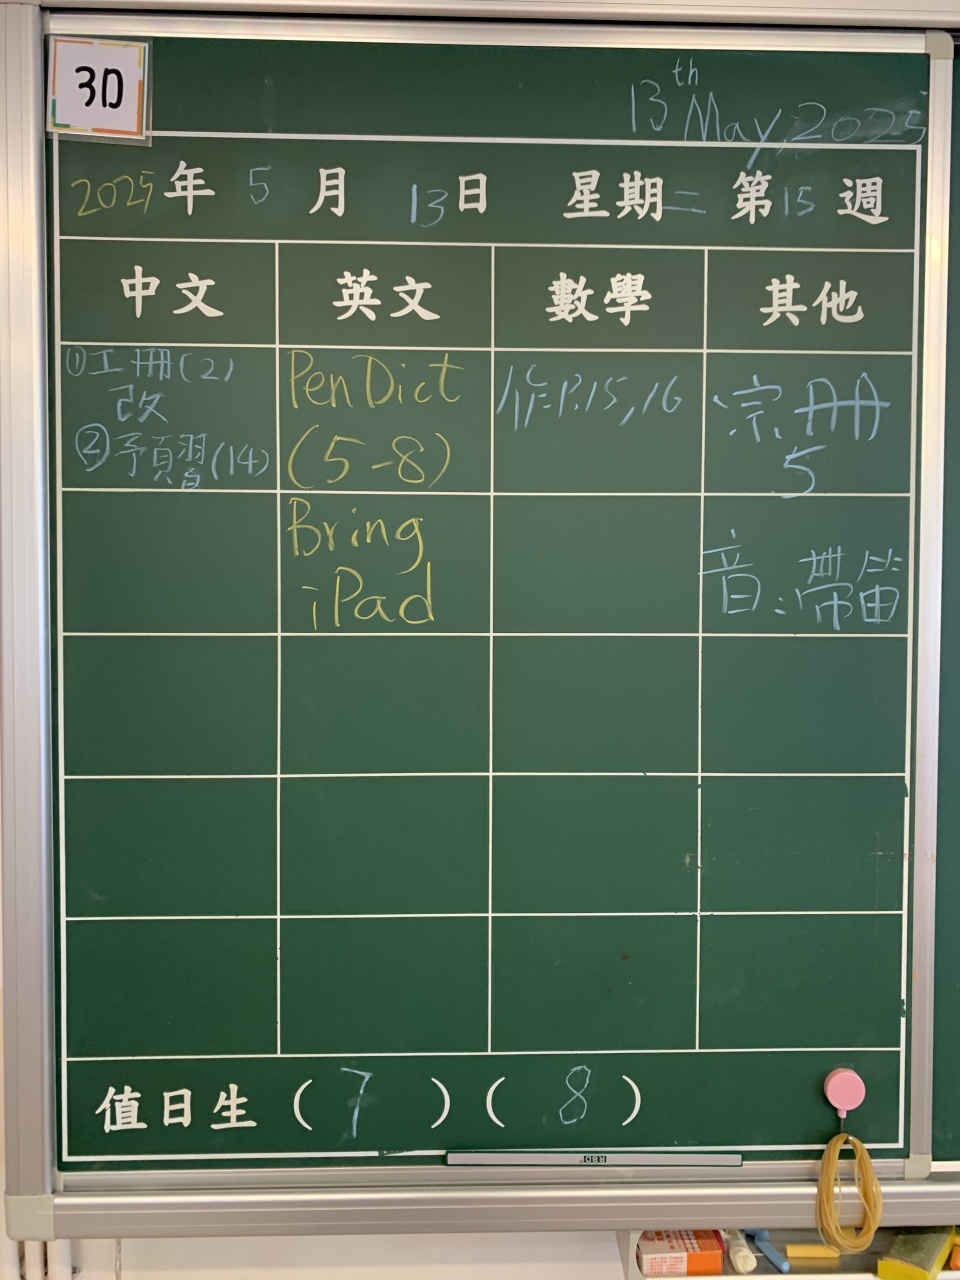 3D
13th May, 2025
2025年 5月 13日 星期二 第15週
中文 英文 數學 其他
①工冊(2)
改
②預習(14)
Pen Dict
(5-8)
作P.15,16
宗.冊
5
Bring
iPad
音:帶笛
值日生 ( 7 ) ( 8 )